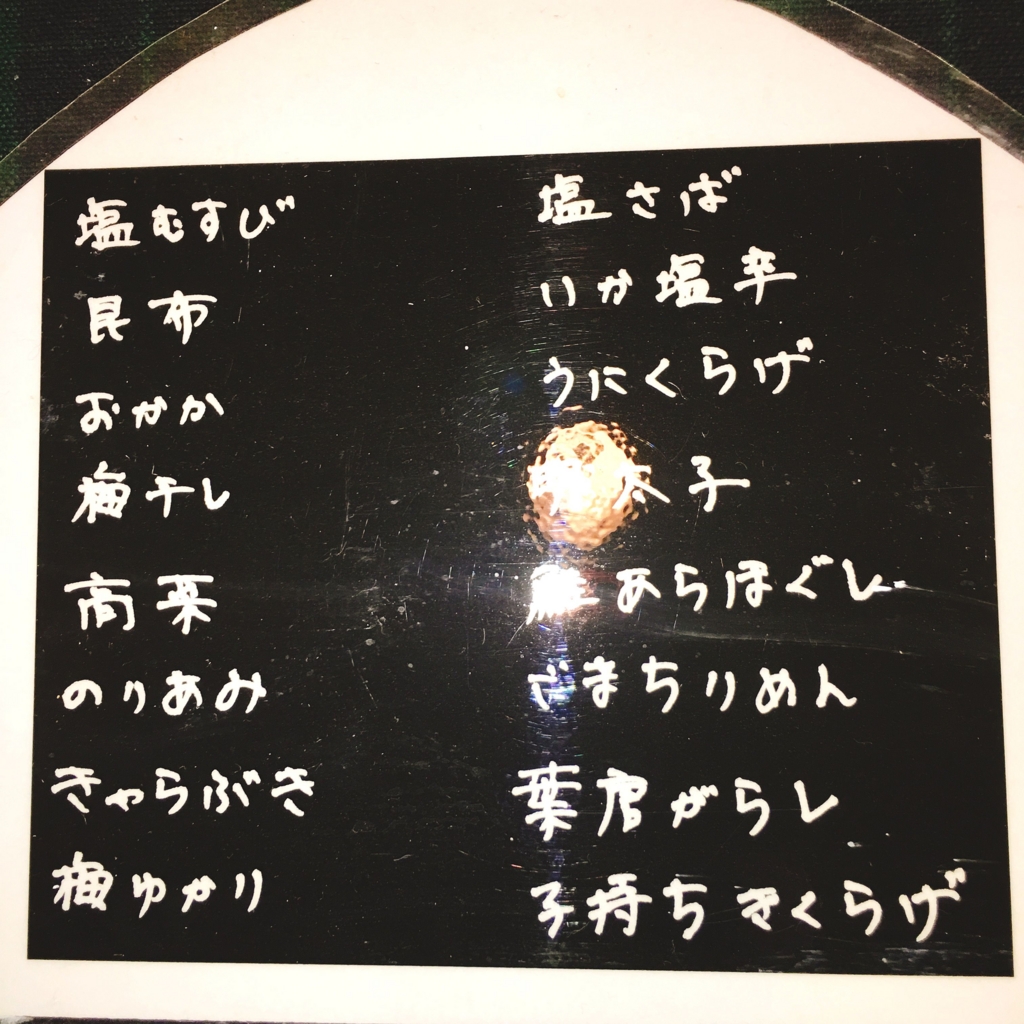 塩むすび
昆布
おかか
梅干し
高菜
のりあみ
きゃらぶき
梅ゆかり
塩さば
いか塩辛
うにくらげ
明太子
鮭あらほぐし
ごまちりめん
葉唐がらし
子持ちきくらげ